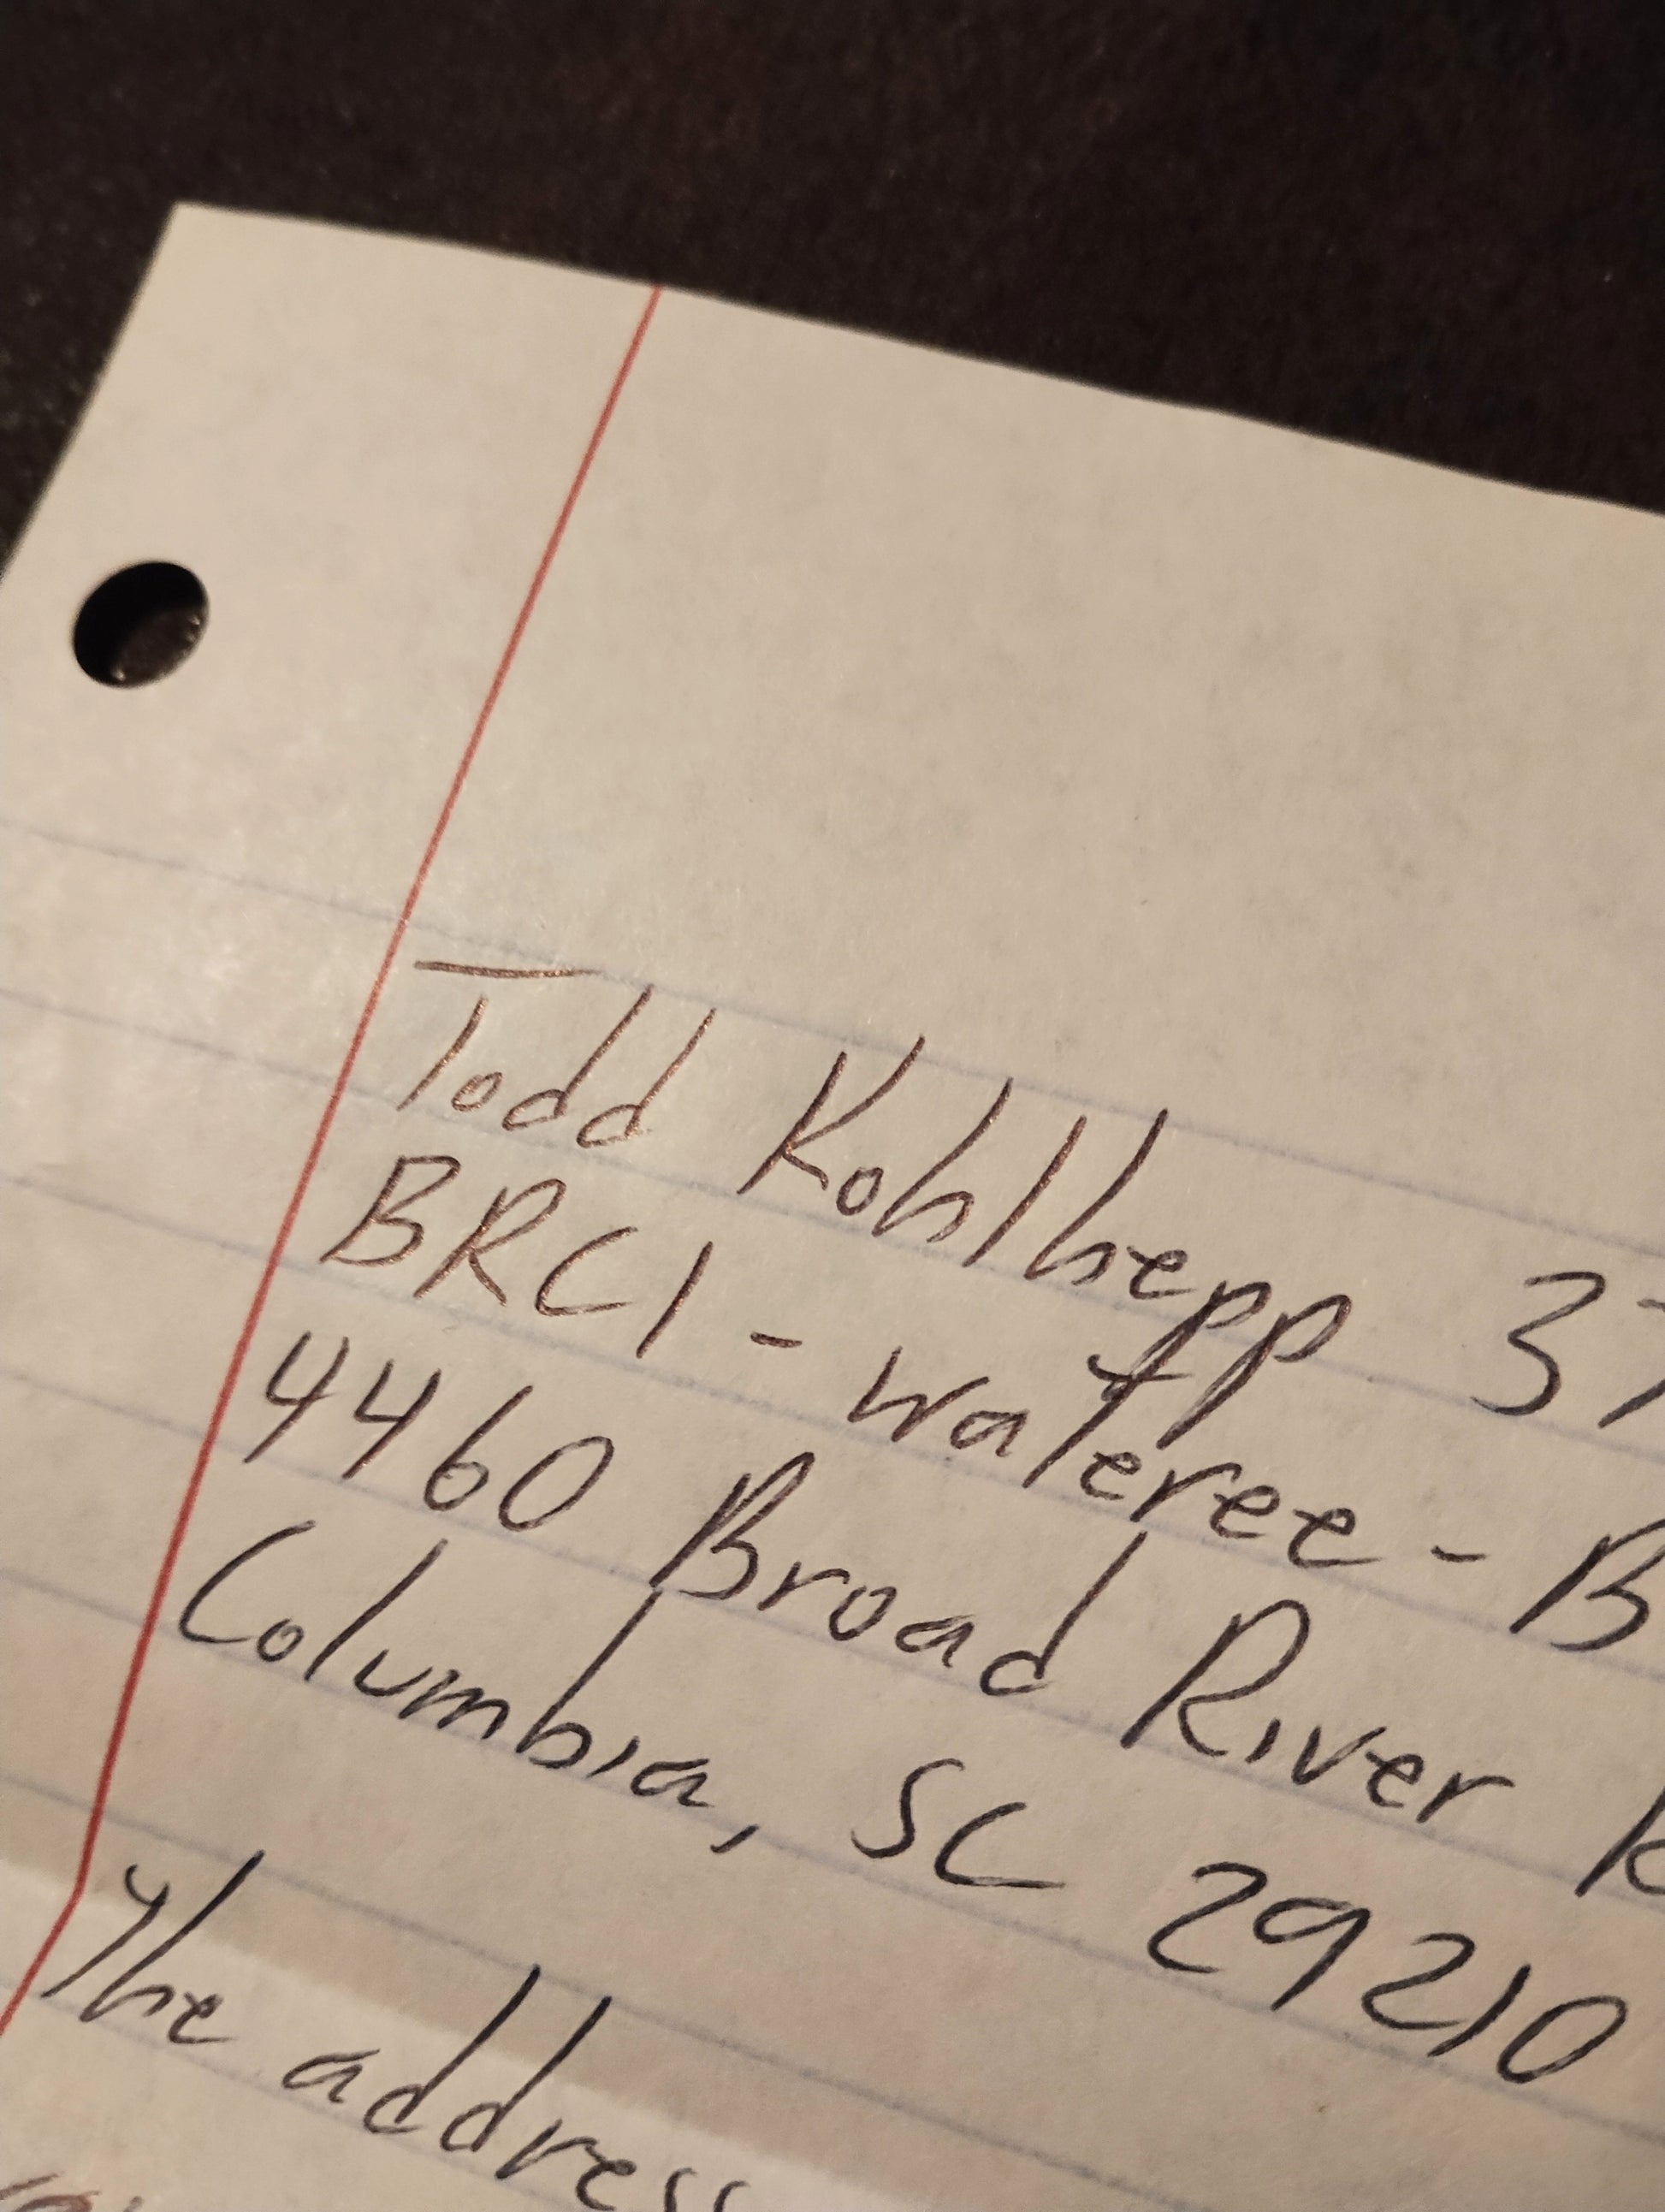 Todd Kohlhepp 37
BRCI - Wateree - B
4460 Broad River
Columbia, SC 29210
The address